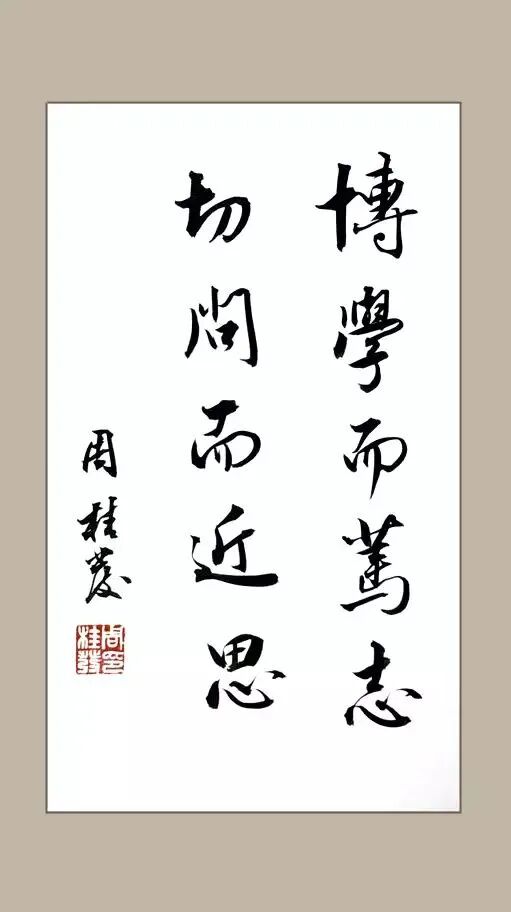 博學而篤志
切問而近思
周桂發
周桂發印